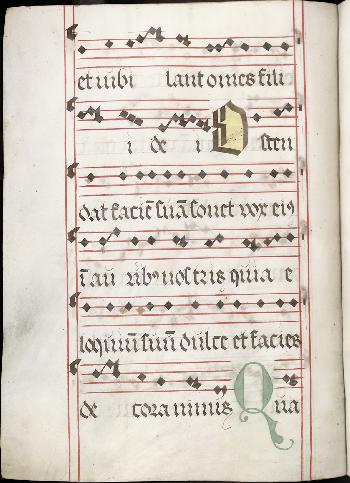 et iubi lant om̄es fili
i de i Osten
dat faciē suā sonet vox ei9
ī au rib9 nostris quia e
loquiū suū dulce et facies
de cora nimis Qua